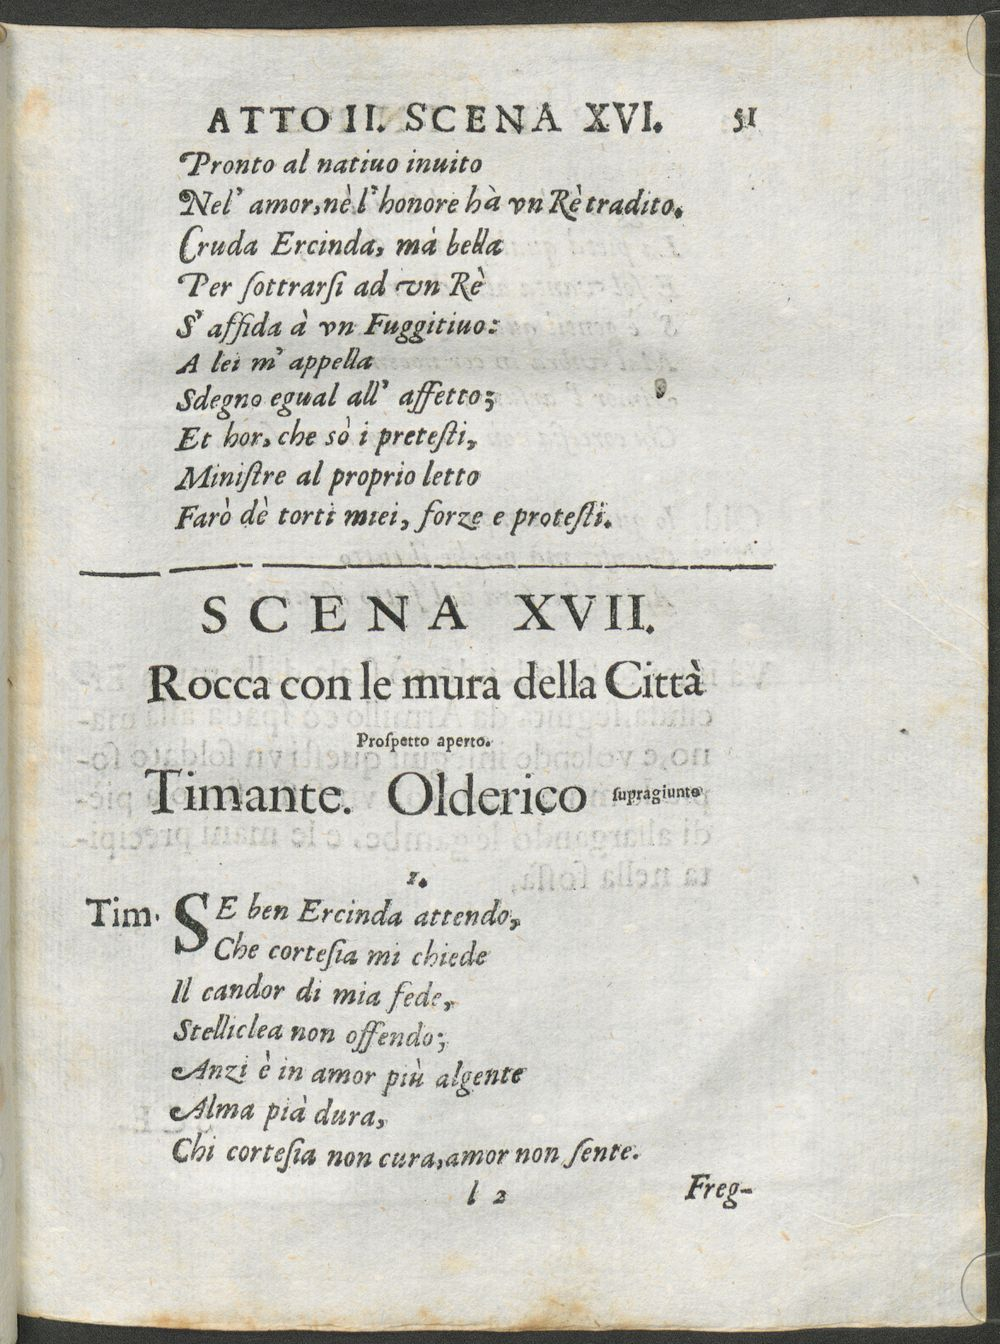 ATTO II. SCENA XVI. 51
Pronto al natiuo inuito
Nel' amor, nè l' honore hà vn Rè tradito.
Cruda Ercinda, mà bella
Per ſottrarſi ad vn Rè
S' affida à vn Fuggitiuo:
A lei m' appella
Sdegno egual all' affetto;
Et hor, che sò i preteſti,
Miniſtre al proprio letto
Farò dè torti miei, forze e proteſti.
SCENA XVII.
Rocca con le mura della Città
Proſpetto aperto.
Timante. Olderico ſupragiunto
1.
Tim. SE ben Ercinda attendo,
Che corteſia mi chiede
Il candor di mia fede,
Stelliclea non offendo;
Anzi è in amor più algente
Alma pià dura,
Chi corteſia non cura, amor non ſente.
l 2 Freg-